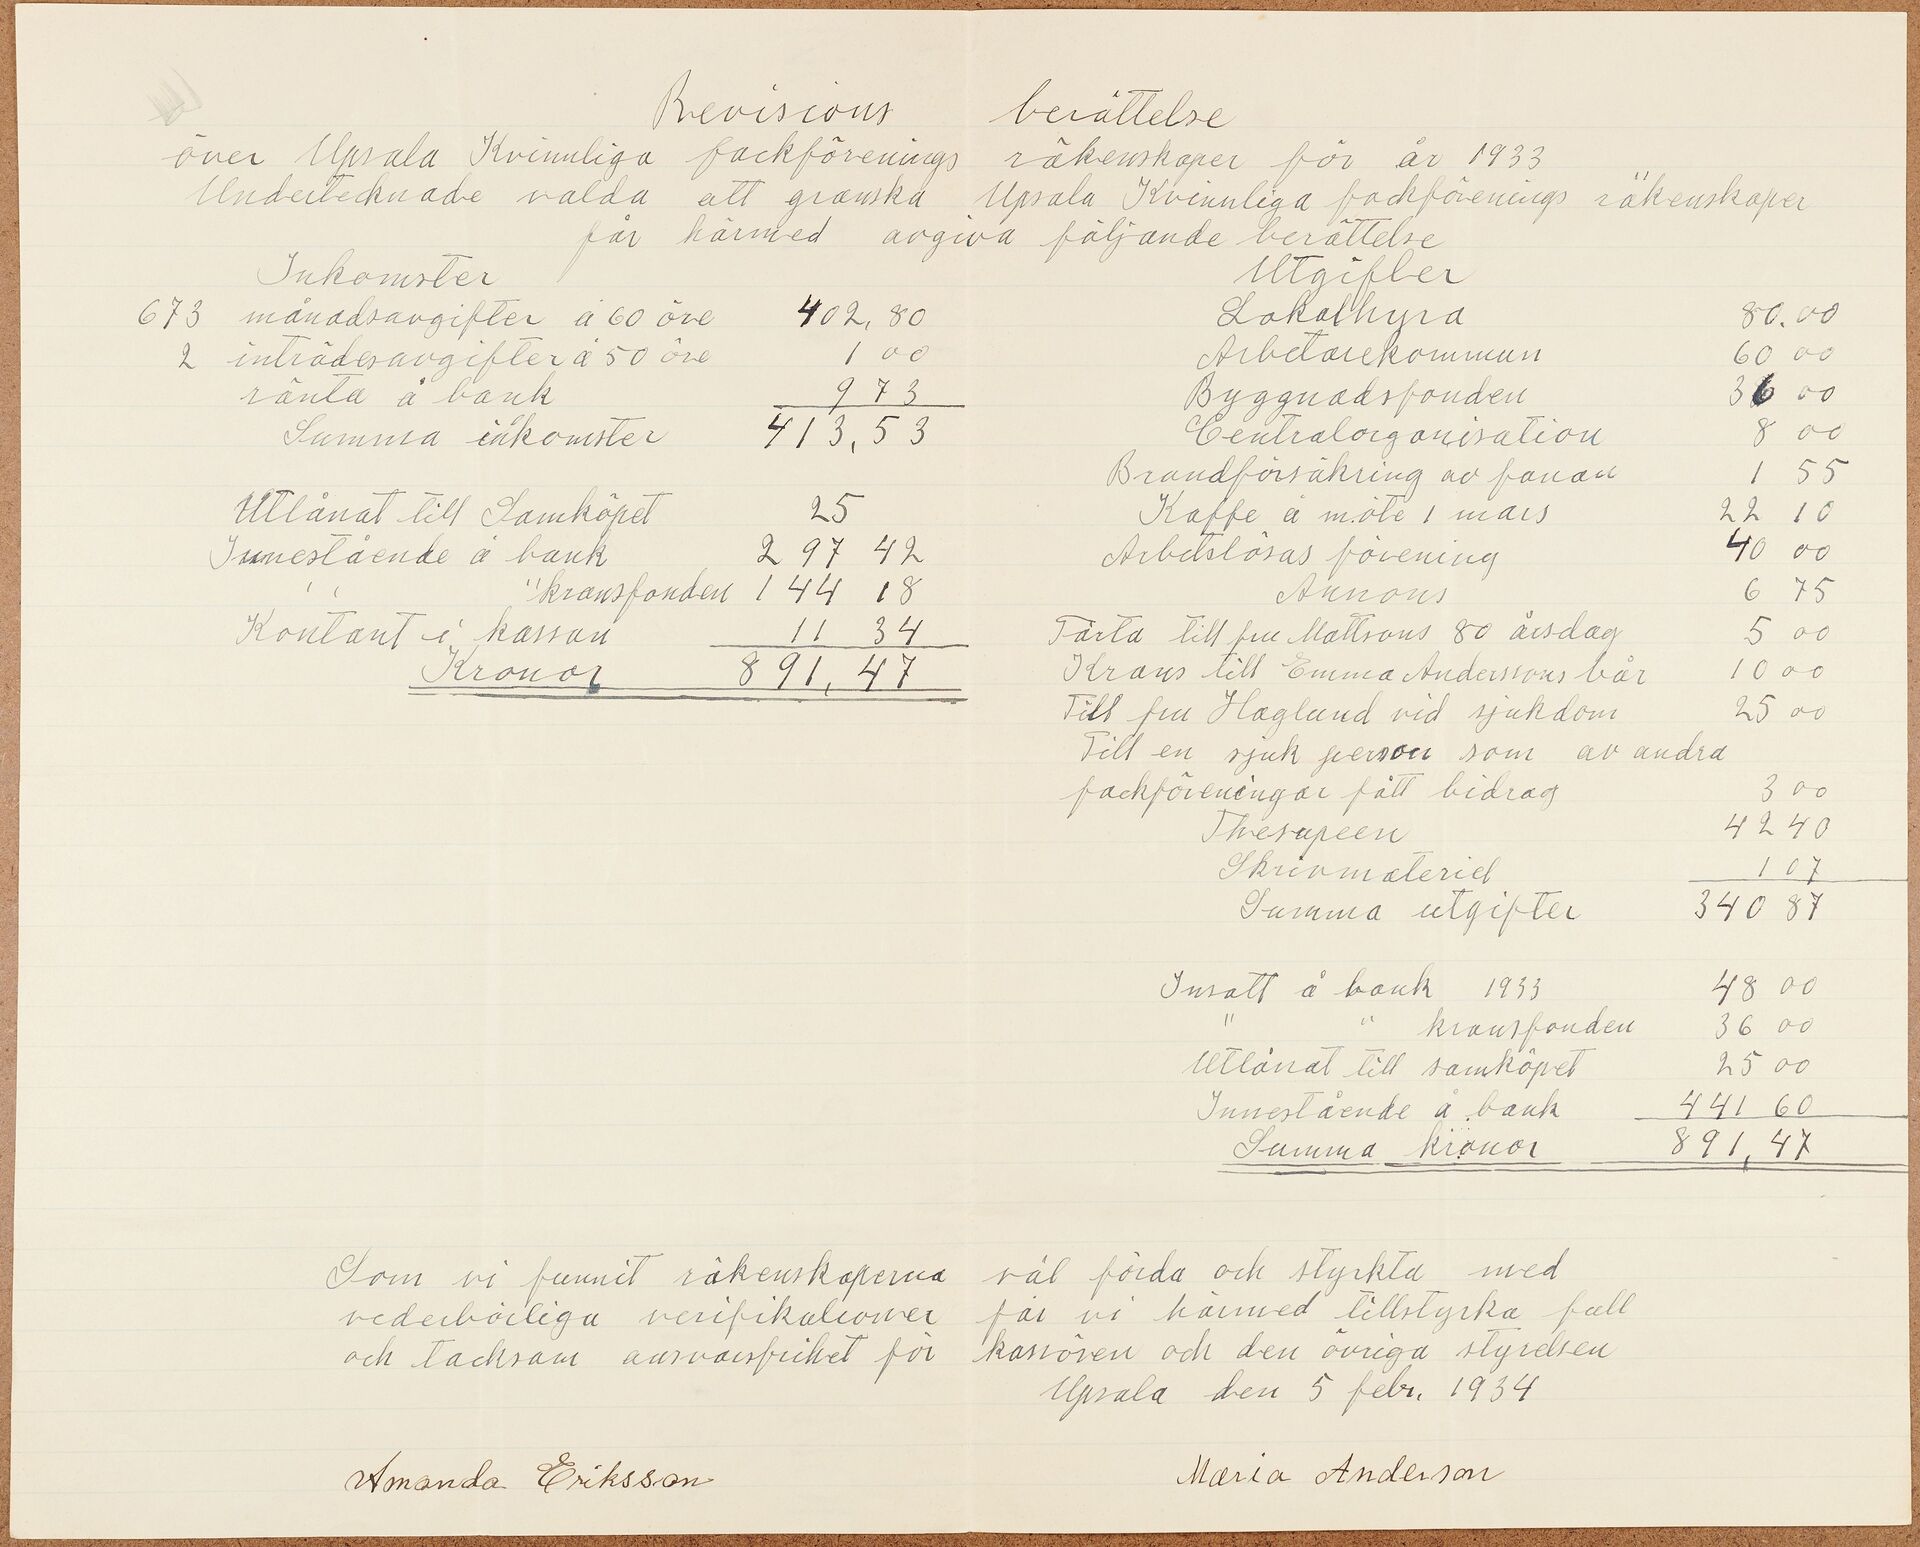 Revisions berättelse
över Upsala Kvinnliga fackförenings räkenskaper för år 1933
Undertecknade valda att granska Upsala Kvinnliga fackförenings räkenskaper
får härmed avgiva följande berättelse
Inkomster
673 månadsavgifter á 60 öre 402,80
2 inträdesavgifter á 50 öre 1 00
ränta å bank 9 73
Summa inkomster 413,53
Utlånat till Samköpet 25
Innestående å bank 297 42
" " kransfonden 144 18
Kontant i kassan 11 34
Kronor 891,47
Utgifter
Lokalhyra 80.00
Arbetarekommun 60 00
Byggnadsfonden 36 00
Centralorganisation 8 00
Brandförsäkring av fanan 1 55
Kaffe å möte 1 mars 22 10
Arbetslösas förening 40 00
Annons 6 75
Tårta till fru Mattsons 80 årsdag 5 00
Krans till Emma Anderssons bår 10 00
Till fru Haglund vid sjukdom 25 00
Till en sjuk person som av andra
fackföreningar fått bidrag 3 00
42 40
Skrivmateriel 1 07
Summa utgifter 340 87
Insatt å bank 1933 48 00
" " kransfonden 36 00
Utlånat till samköpet 25 00
Innestående å bank 441 60
Summa kronor 891,47
Som vi funnit räkenskaperna väl förda och styrkta med
vederbörliga verifikationer får vi härmed tillstyrka full
och tacksam ansvarsfrihet för kassören och den övriga styrelsen
Upsala den 5 febr. 1934
Amanda Eriksson Maria Anderson